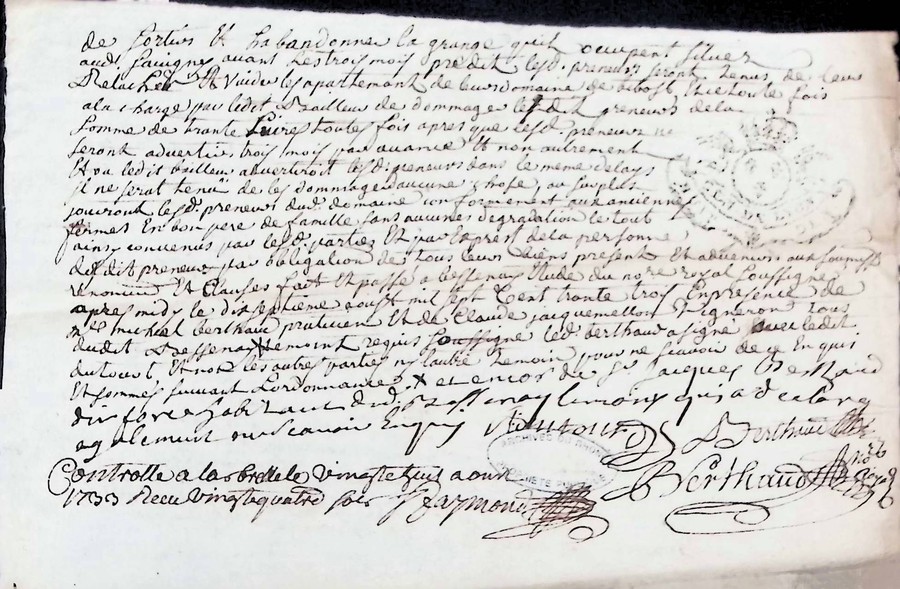 de sortir Et habandonner la grange qu'ils occupent silvez
audt savigny avant les trois mois prédit lesd. preneurs seront tenus de leur
Relacher Et vuider les apartement de leur domaine de Et ce toute fois
a la charge par ledt Bailleur de dommager les dt preneurs de la
somme de trante Livres toutes fois apres que lesd. preneurs ne
seront advertis trois mois par avance Et non autrement
Et ou ledit bailleur advertiroit lesd. preneurs dans le meme delays
il ne serat tenu de les dommager daucune chose, au surplus
jouiront lesd. preneurs dud. domaine conformement aux anciennes
fermes En bon pere de famille sans aucunes degradation le tout
ainsy convenus par lesd. parties Et par Exprest de la personne
dudit preneur par obligation de tous leur biens present Et advenirs aux soumiss
renoncia Et Clauses fait Et passé a bessenay Etude du nore royal soussigné
apres midy le dix septième aoust mil sept Cent trante trois En presence de
me michel berthaud praticien Et de Claude jacquemetton vigneron tous
dudit Bessenay temoins requis soussigné led. berthaud a signé avec ledit
dutourt Et non les autres parties ny lautre temoin pour ne scavoir de ce Enquis
Et sommés suivant Lordonnance X et encor de Sr Jacques
habitant dud. Bessenay temoins qui a declaré
egalement ne scavoir Enquis Dutourd Berthaud
Controlle a la brelle le vingt et huit aoust
1733 Receu vingt quatre sols Raymond Berthaud
ARCHIVES DU RHONE